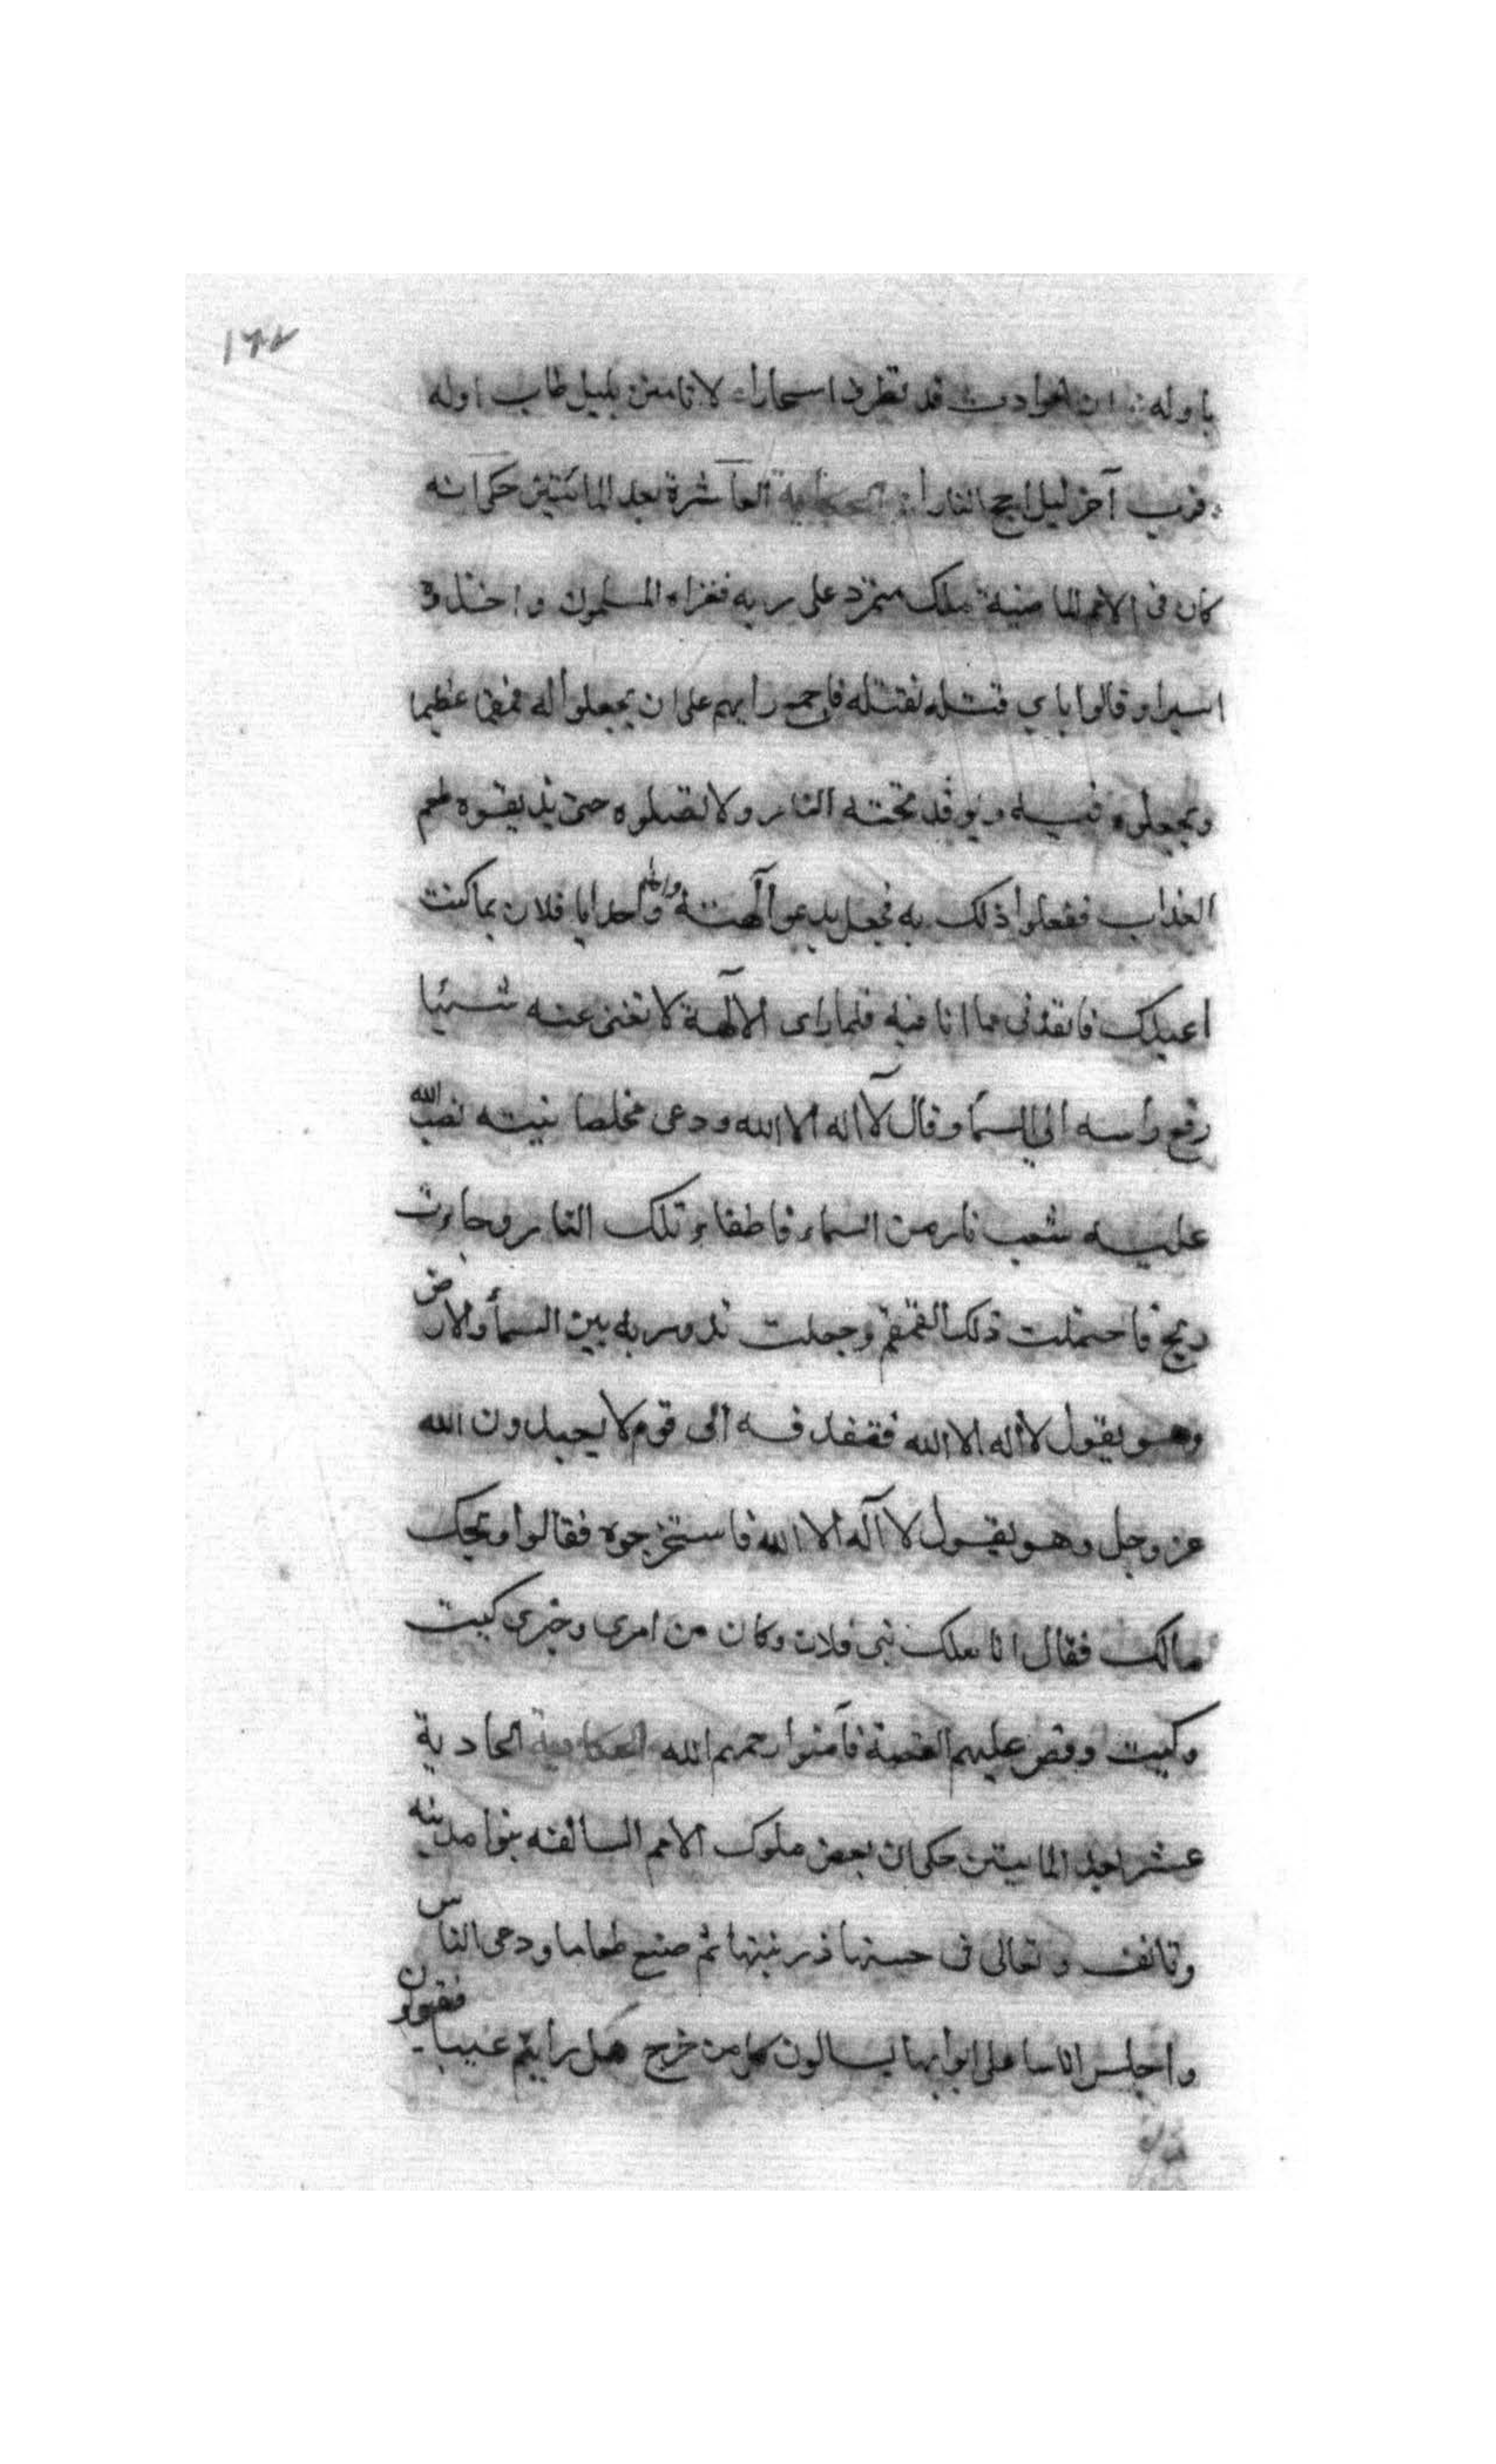 ١٦٧
باوله ؞ ان الحوادث قد تطرق اسحارا ؞ لا تامنن بليل طاب اوله
؞ فرب آخر ليل اجج النارا ؞ الحكاية العآشرة بعد المائتين حكى انه
كان فى الامم الماضية ملك متمرد على ربه فغزاه المسلمون واخذوه
اسيرا وقالوا باي قتله نقتله فاجمع رايهم على ان يجعلوا له قمقما عظيما
ويجعلوه فيه ويوقد تحته النار ولا يقتلوه حتى يذيقوه طعم
العذاب ففعلوا ذلك به فجعل يدعو آلهته واحدا يا فلان بما كنت
اعبدك فانقذنى مما انا فيه فلما راى الآلهة لا تغنى عنه شيئا
رفع راسه الى السمآ وقال لآ اله الا الله ودعى مخلصا بنيته فصب الله
عليه شعب نار من السماء فاطفاء تلك النار وجاءت
ريح فاحتملت ذلك القمقم وجعلت تدور به بين السمأ والارض
وهو يقول لا اله الا الله فقذفه الى قوم لا يعبدون الله
عز وجل وهو يقول لا آله الا الله فاستخرجوه فقالوا ويحك
مالك فقال انا ملك بنى فلان وكان من امرى وخبرى كيت
وكيت وقص عليهم القصة فآمنوا رحمهم الله الحكاية الحادية
عشر بعد المايتين حكى ان بعض ملوك الامم السالفه بنوا مدينه
وتانف وتعالى فى حسنها وزينتها ثم صنع طعاما ودعى الناس
واجلس اناسا على ابوابها يسالون كل من خرج هل رأيتم عيبا فيقولون